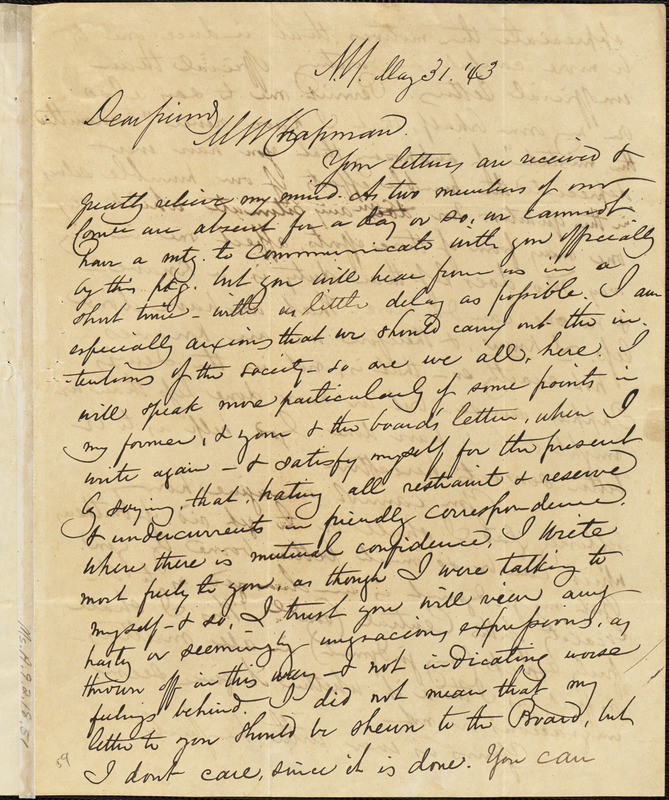 N.Y. May 31. '43
Dear friend
M W Chapman.
Your letters are received &
greatly relieve my mind. As two members of our
Comee are absent for a day or so, we cannot
have a mtg. to Communicate with you officially
by this pkg. but you will hear from us in a
short time - with as little delay as possible. I am
especially anxious that we should carry out the in-
-tentions of the society - so are we all, here. I
will speak more particularly of some points in
my former, & your & the board's letter, when I
write again - & satisfy myself for the present
by saying, that, hating all restraint & reserve
& undercurrents in friendly correspondence,
where there is mutual confidence, I write
most freely to you, as though I were talking to
myself - & so, I trust you will view any
hasty or seemingly ungracious expressions, as
thrown off in this way - & not indicating worse
feelings behind. I did not mean that my
letter to you should be shewn to the Board, but
I dont care, since it is done. You can
59
Ms.A.9.2.18.51